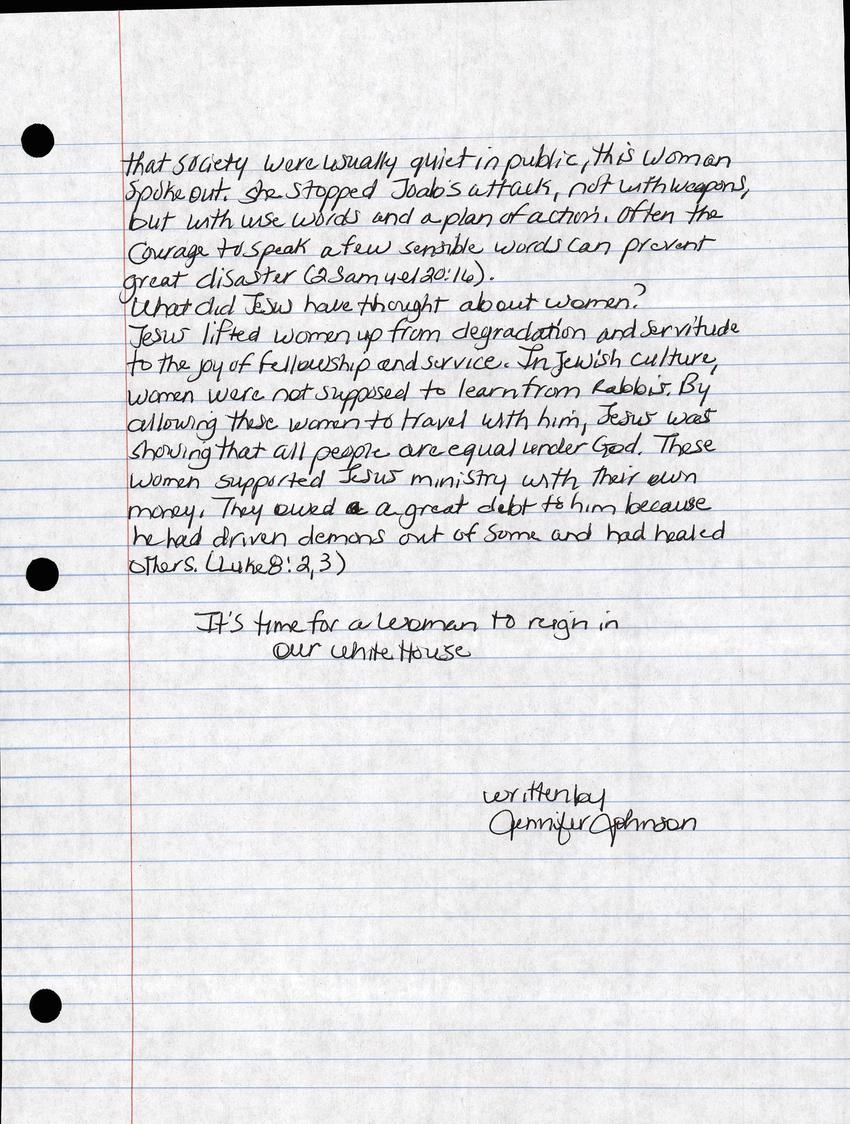 that society were usually quiet in public, this woman
spoke out. she stopped Joab's attack, not with weapons,
but with wise words and a plan of action. Often the
Courage to speak a few sensible words can prevent
great disaster (2 Samuel 20:16).
What did Jesus have thought about women?
Jesus lifted women up from degradation and servitude
to the joy of fellowship and service. In Jewish culture,
women were not supposed to learn from Rabbis. By
allowing these women to travel with him, Jesus was
showing that all people are equal under God. These
women supported Jesus ministry with their own
money. They owed a a great debt to him because
he had driven demons out of some and had healed
others. (Luke 8:2,3)
It's time for a woman to reign in
Our White House
written by
Jennifer Johnson